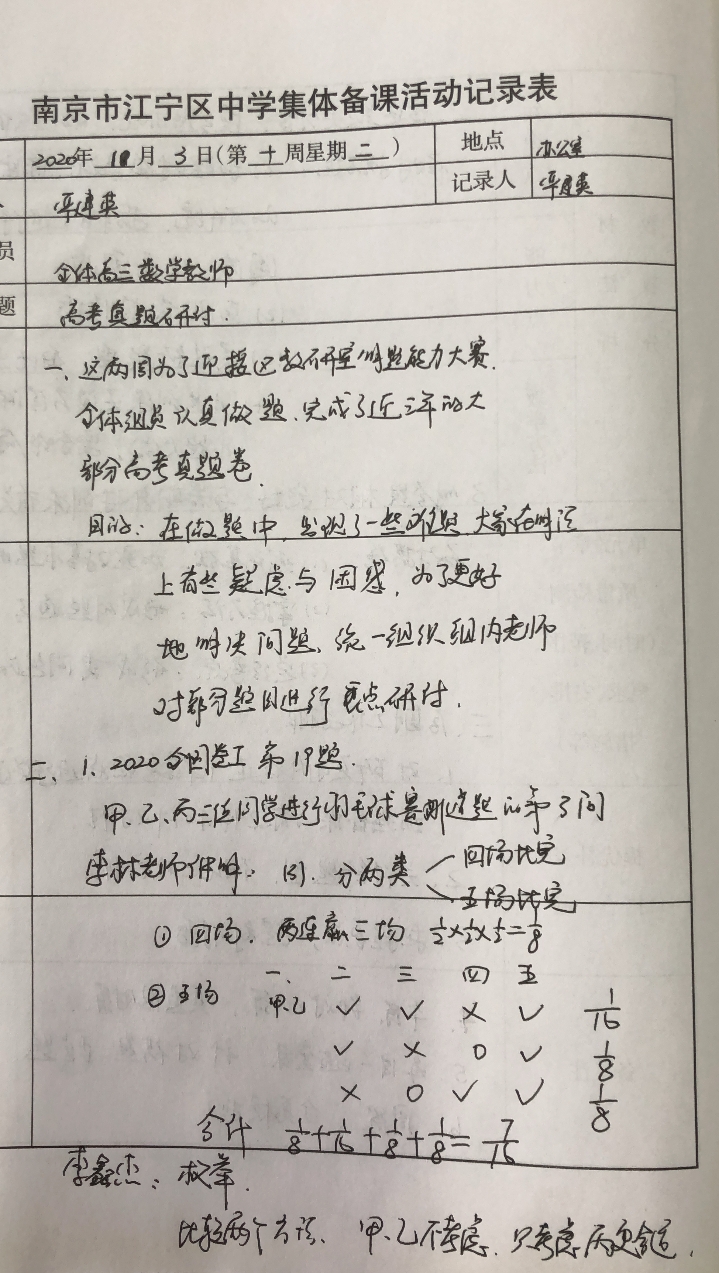 南京市江宁区中学集体备课活动记录表
2020年 11月 3日(第十周星期二) 地点 办公室
记录人
员 全体高三数学教师
题 高考真题研讨.
一、这两周为了迎接区教研室解题能力大赛.
全体组员认真做题、完成了近三年的大
部分高考真题卷.
目的: 在做题中,发现了一些难题,大家在解法
上有些疑虑与困惑,为了更好
地解决问题、统一组织组内老师
对部分题目进行重点研讨.
二、1、2020全国卷I 第19题.
甲、乙、丙三位同学进行羽毛球赛那道题的第3问
李林老师讲解: (3). 分两类 四场比完
五场比完
① 四场. 丙连赢三场 1/2×1/2×1/2=1/8
② 五场 一、 二 三 四 五
甲乙 ✓ ✓ × ✓ 1/16
✓ × 0 ✓ 1/8
× 0 ✓ ✓ 1/8
合计 1/8+1/16+1/8+1/8=7/16
李鑫杰: 枚举.
比较两个方法、甲、乙不考虑.只考虑丙更合适.